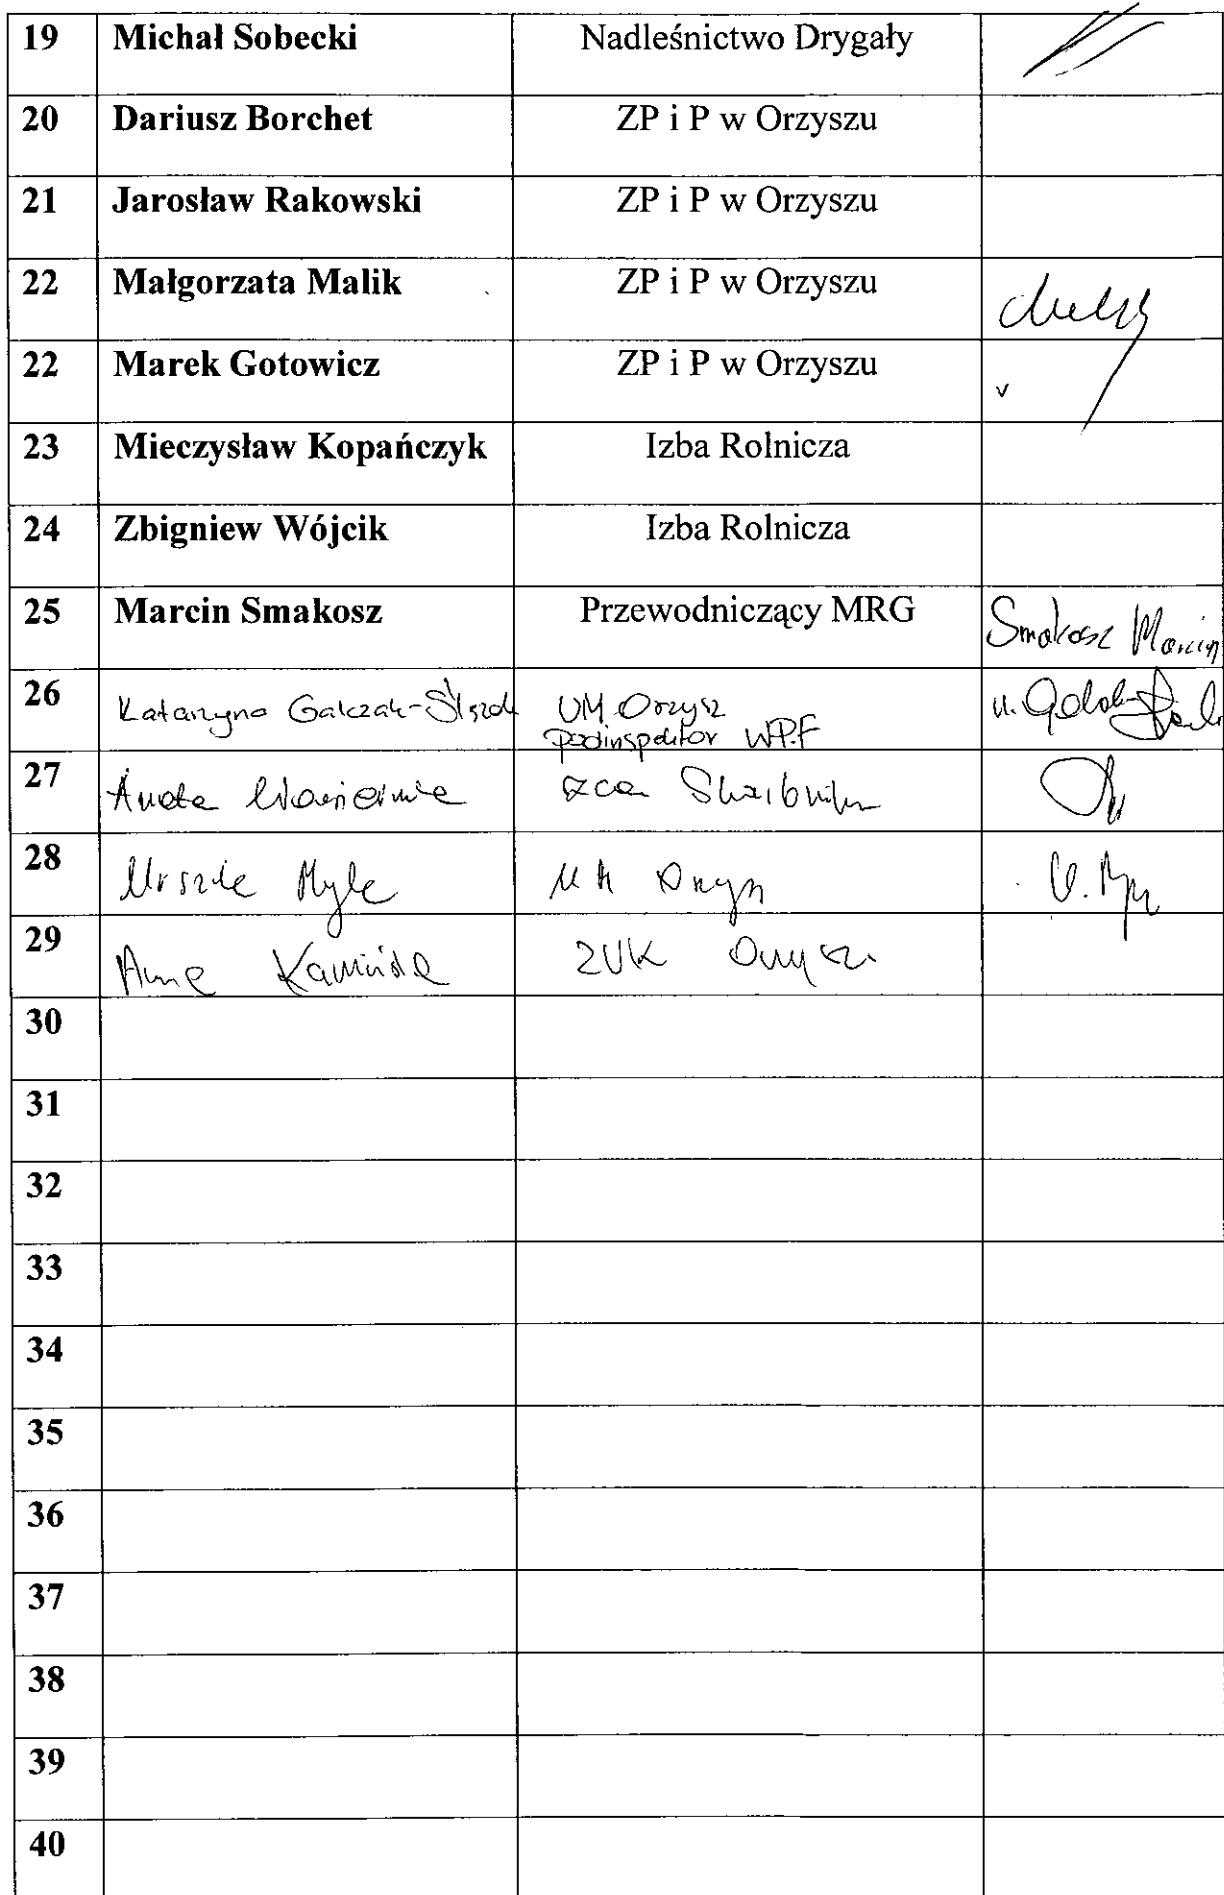 19 Michał Sobecki Nadleśnictwo Drygały
20 Dariusz Borchet ZP i P w Orzyszu
21 Jarosław Rakowski ZP i P w Orzyszu
22 Małgorzata Malik ZP i P w Orzyszu
22 Marek Gotowicz ZP i P w Orzyszu
v
23 Mieczysław Kopańczyk Izba Rolnicza
24 Zbigniew Wójcik Izba Rolnicza
25 Marcin Smakosz Przewodniczący MRG Smakosz Marcin
26 Katarzyna UM Orzysz
podinspektor WPF
27 Aneta zca Skarbnika
28 Urszula UM Orzysz
29 Anna Kamińska ZUK Orzysz
30
31
32
33
34
35
36
37
38
39
40